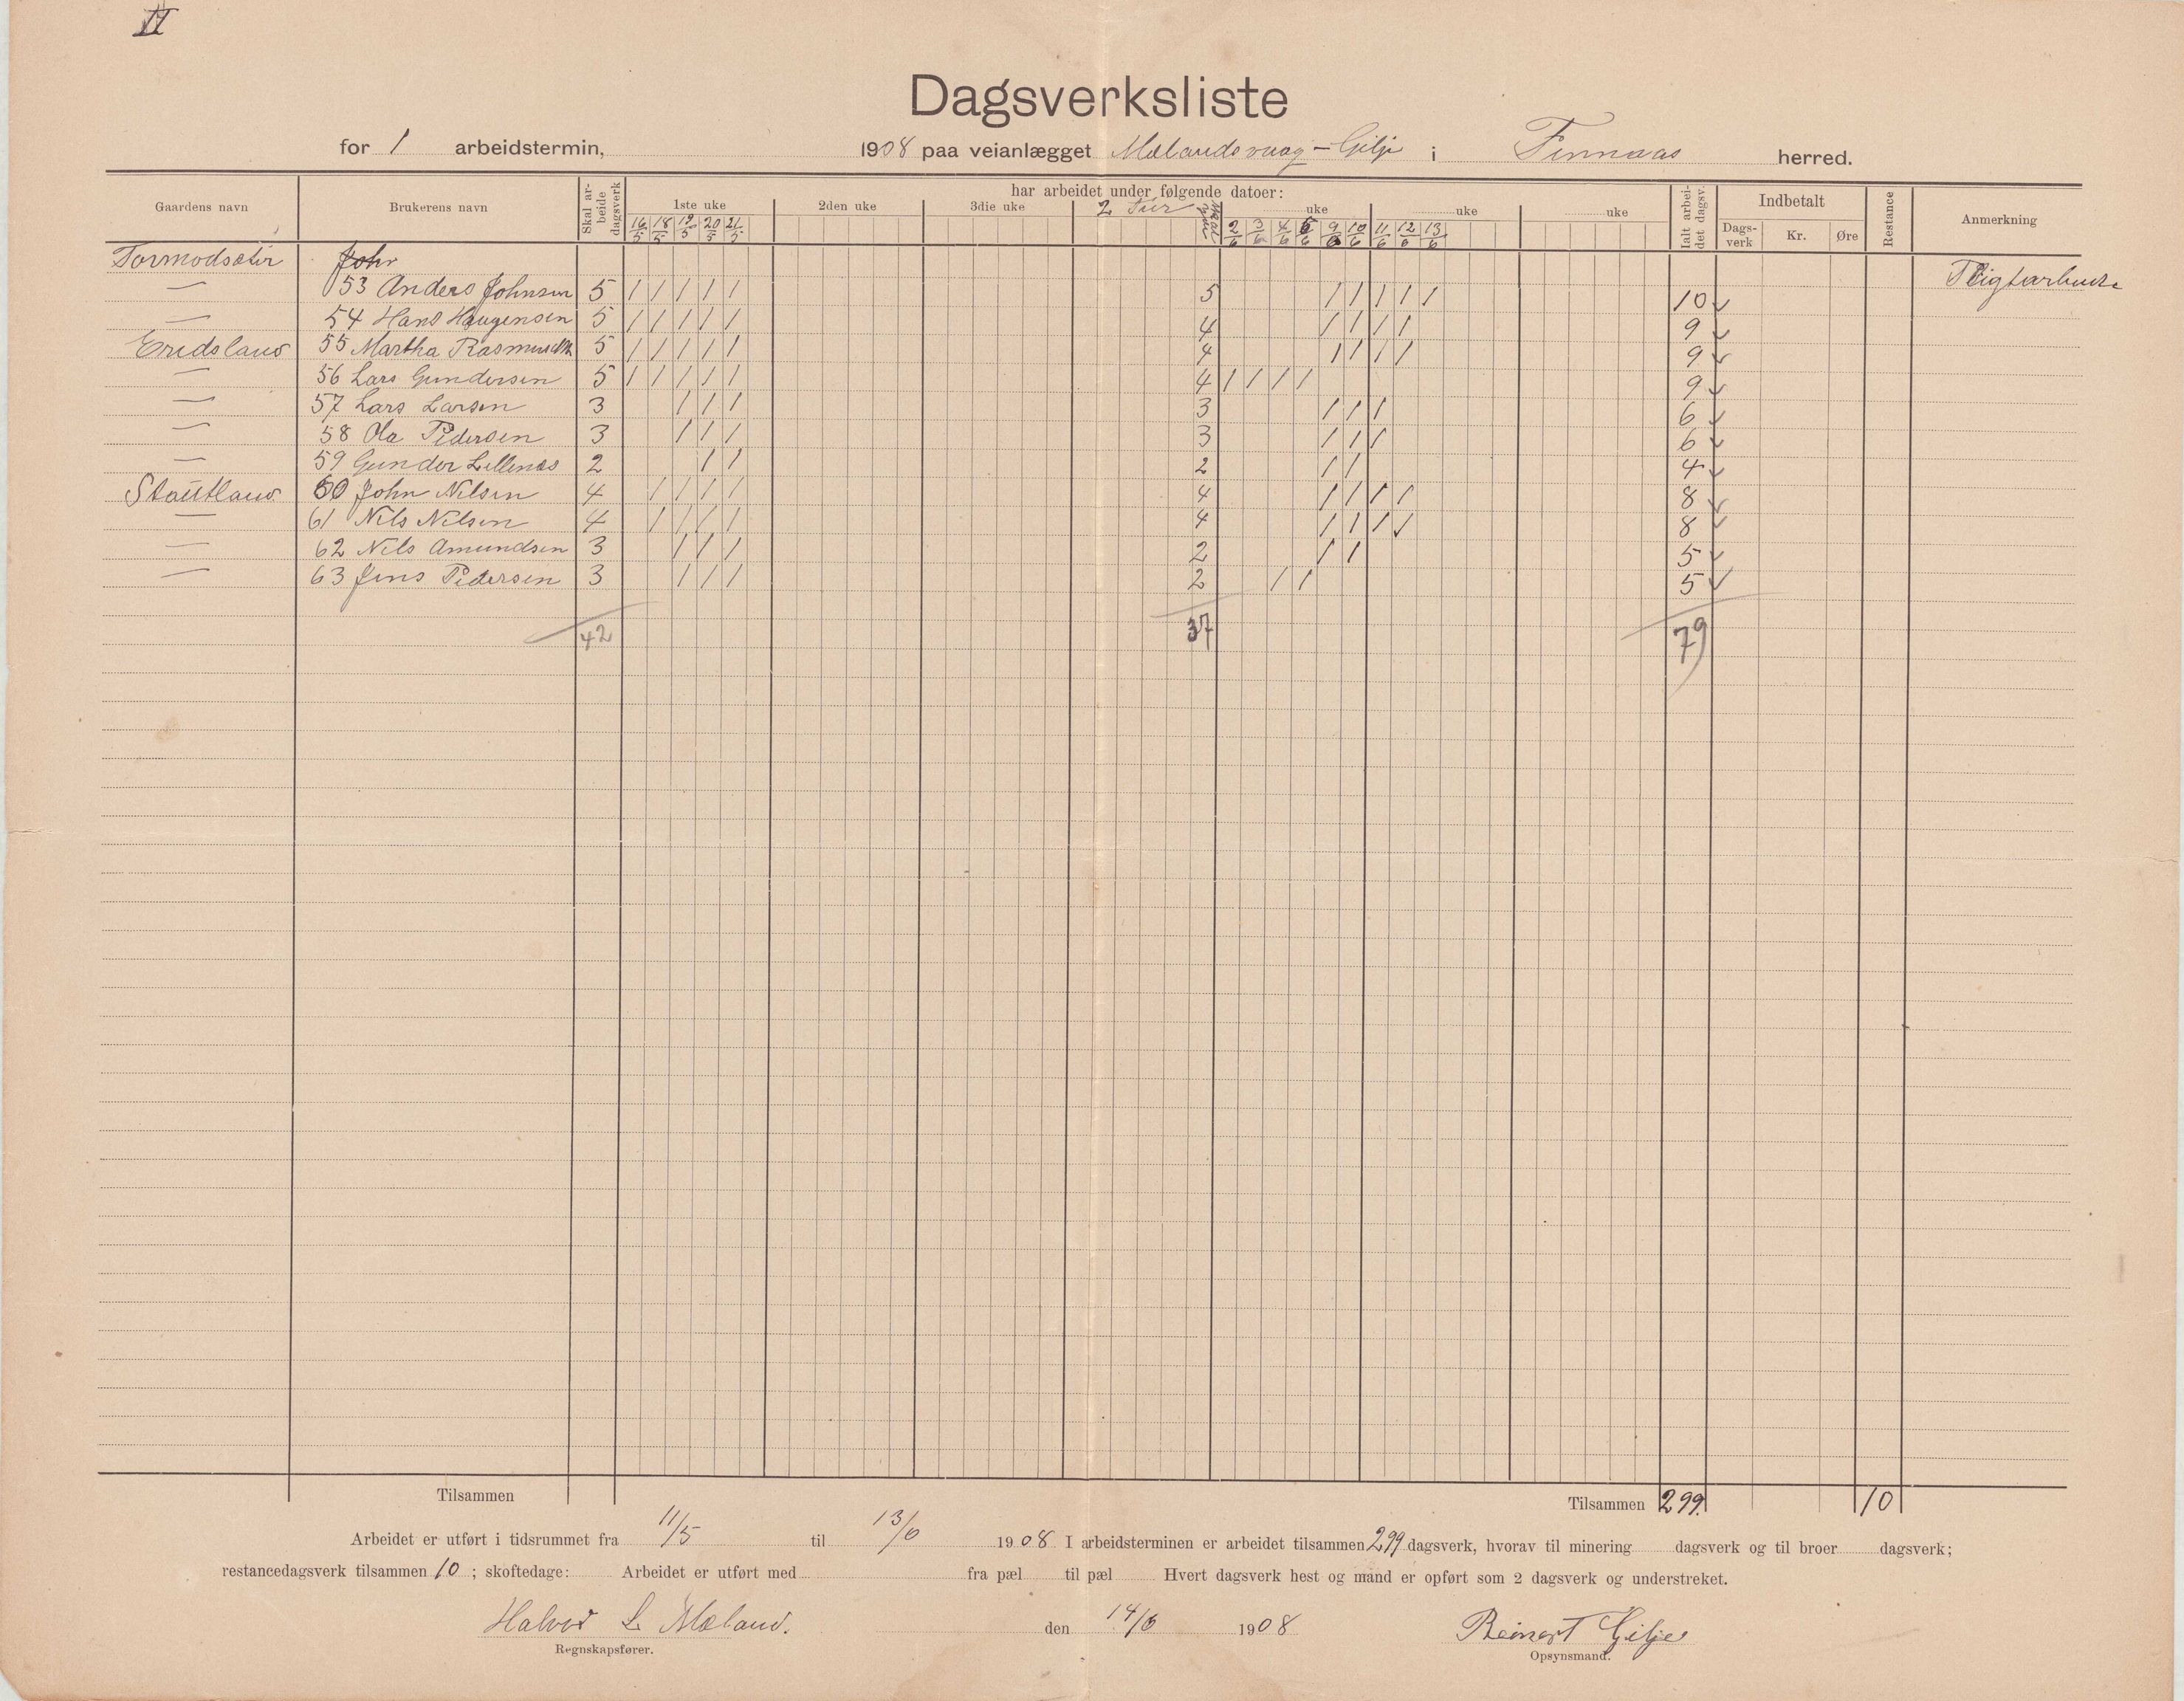 II
Dagsverksliste
for 1 arbeidstermin, 1908 paa veianlægget Mælandsvaag - Gilje i Finnaas herred.
har arbeidet under følgende datoer:
Gaardens navn Brukerens navn Skal arbeide dagsverk 1ste uke 2den uke 3die uke 2 Tur uke uke uke Ialt arbeidet dagsv. Indbetalt Restance Anmerkning
Dagsverk Kr. Øre
16/5 18/5 19/5 20/5 21/5 2/6 3/6 4/6 5/6 9/6 10/6 11/6 12/6 13/6
Tormodsæter John
— 53 Anders Johnsen 5 / / / / / 5 / / / / / 10 v
— 54 Hans Haugensen 5 / / / / / 4 / / / / 9 v
Eridsland 55 Martha Rasmusdtr 5 / / / / / 4 / / / / 9 v
— 56 Lars Gundersen 5 / / / / / 4 / / / / 9 v
— 57 Lars Larsen 3 / / / 3 / / / 6 v
— 58 Ola Pedersen 3 / / / 3 / / / 6 v
— 59 Gunder Lillenes 2 / / 2 / / 4 v
Stautland 60 John Nilsen 4 / / / / 4 / / / / 8 v
— 61 Nils Nilsen 4 / / / / 4 / / / / 8 v
— 62 Nils Amundsen 3 / / / 2 / / 5 v
— 63 Jens Pedersen 3 / / / 2 / / 5 v
42 37 79
Tilsammen Tilsammen 299 10
Arbeidet er utført i tidsrummet fra 11/5 til 13/6 1908 I arbeidsterminen er arbeidet tilsammen 299 dagsverk, hvorav til minering dagsverk og til broer dagsverk;
restancedagsverk tilsammen 10; skoftedage: Arbeidet er utført med fra pæl til pæl Hvert dagsverk hest og mand er opført som 2 dagsverk og understreket.
Halvor L Mæland. den 14/6 1908 Reinert Gilje
Regnskapsfører. Opsynsmand.